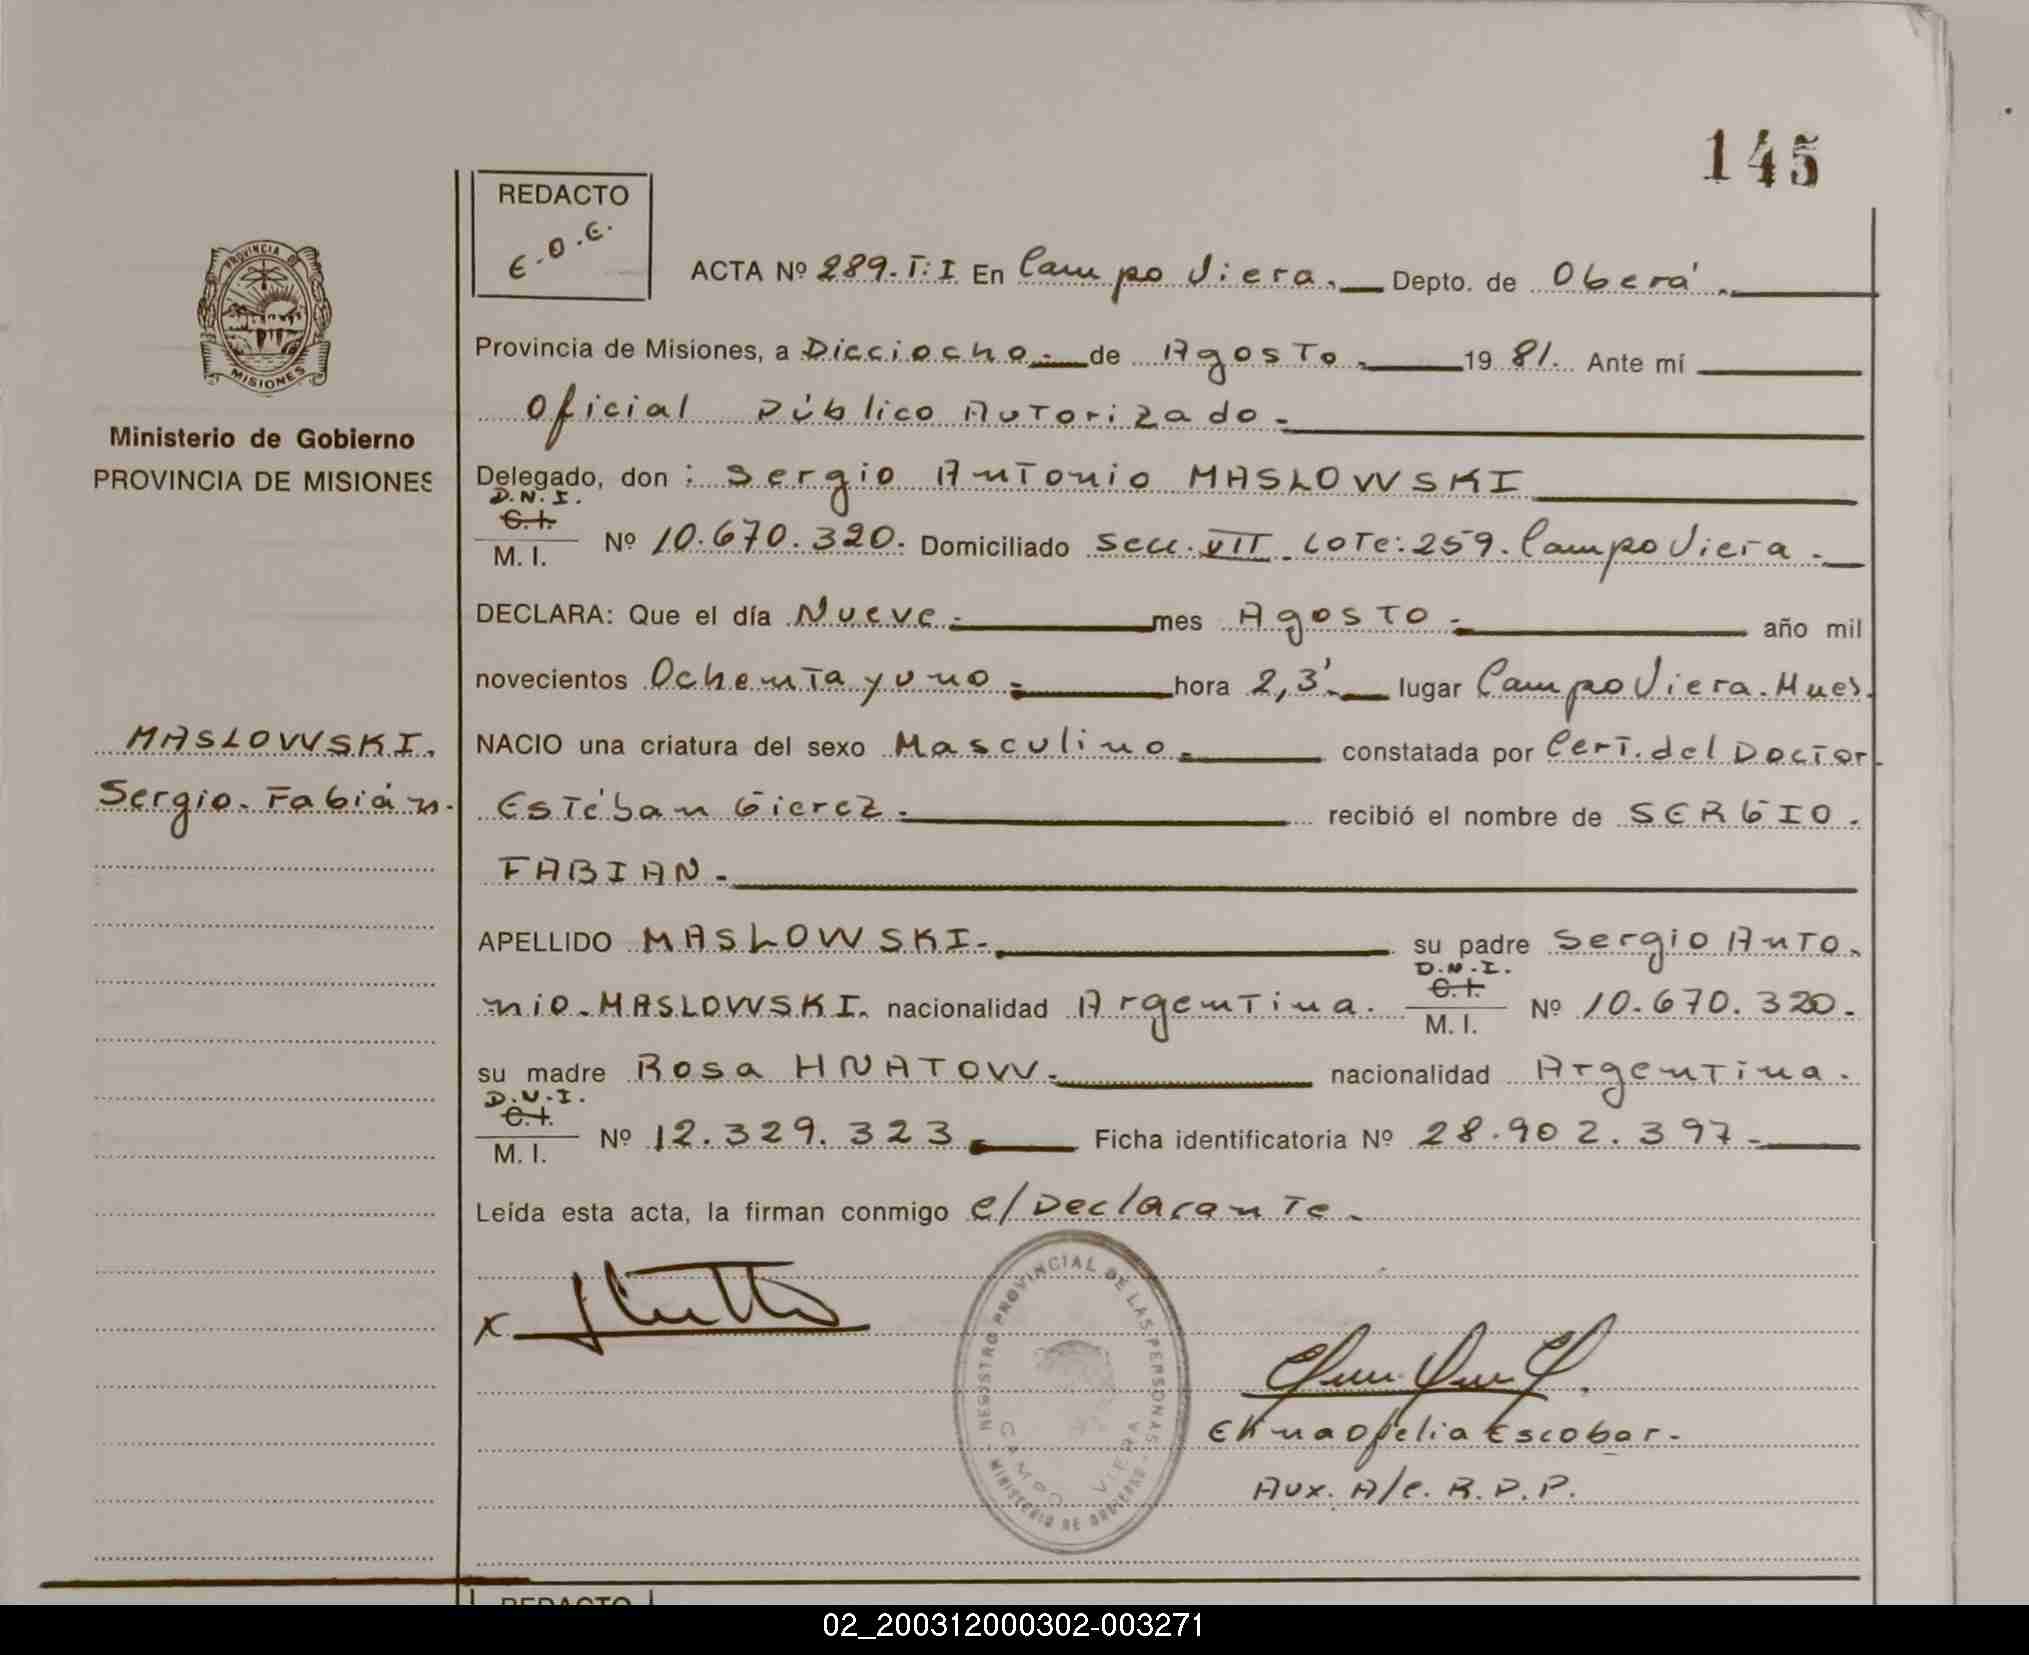 145
REDACTO
E.O.E.
ACTA Nº 289.T:I En Campo Viera.— Depto. de Oberá.—
PROVINCIA DE
MISIONES
Provincia de Misiones, a Dieciocho.— de Agosto.— 1981. Ante mí
Oficial Público Autorizado.—
Ministerio de Gobierno
PROVINCIA DE MISIONES
Delegado, don : Sergio Antonio MASLOWSKI
D.N.I.
C.I.
M. I. Nº 10.670.320. Domiciliado Secc. VII. Lote: 259. Campo Viera.—
DECLARA: Que el día Nueve.— mes Agosto.— año mil
novecientos Ochenta y uno.— hora 2,3'.— lugar Campo Viera. Mnes.
MASLOWSKI.
Sergio. Fabián.
NACIO una criatura del sexo Masculino.— constatada por Cert. del Doctor
Estéban Gierez.— recibió el nombre de SERGIO.
FABIAN.—
APELLIDO MASLOWSKI.— su padre Sergio Anto.
nio. MASLOWSKI. nacionalidad Argentina. D.N.I. C.I. M. I. Nº 10.670.320.
su madre Rosa HNATOW.— nacionalidad Argentina.
D.N.I.
C.I.
M. I. Nº 12.329.323.— Ficha identificatoria Nº 28.902.397.—
Leída esta acta, la firman conmigo e/Declarante.
x
REGISTRO PROVINCIAL DE LAS PERSONAS
CAMPO VIERA
MINISTERIO DE GOBIERNO
Ofelia Escobar.
Aux. A/c. R.P.P.
REDACTO
02_200312000302-003271